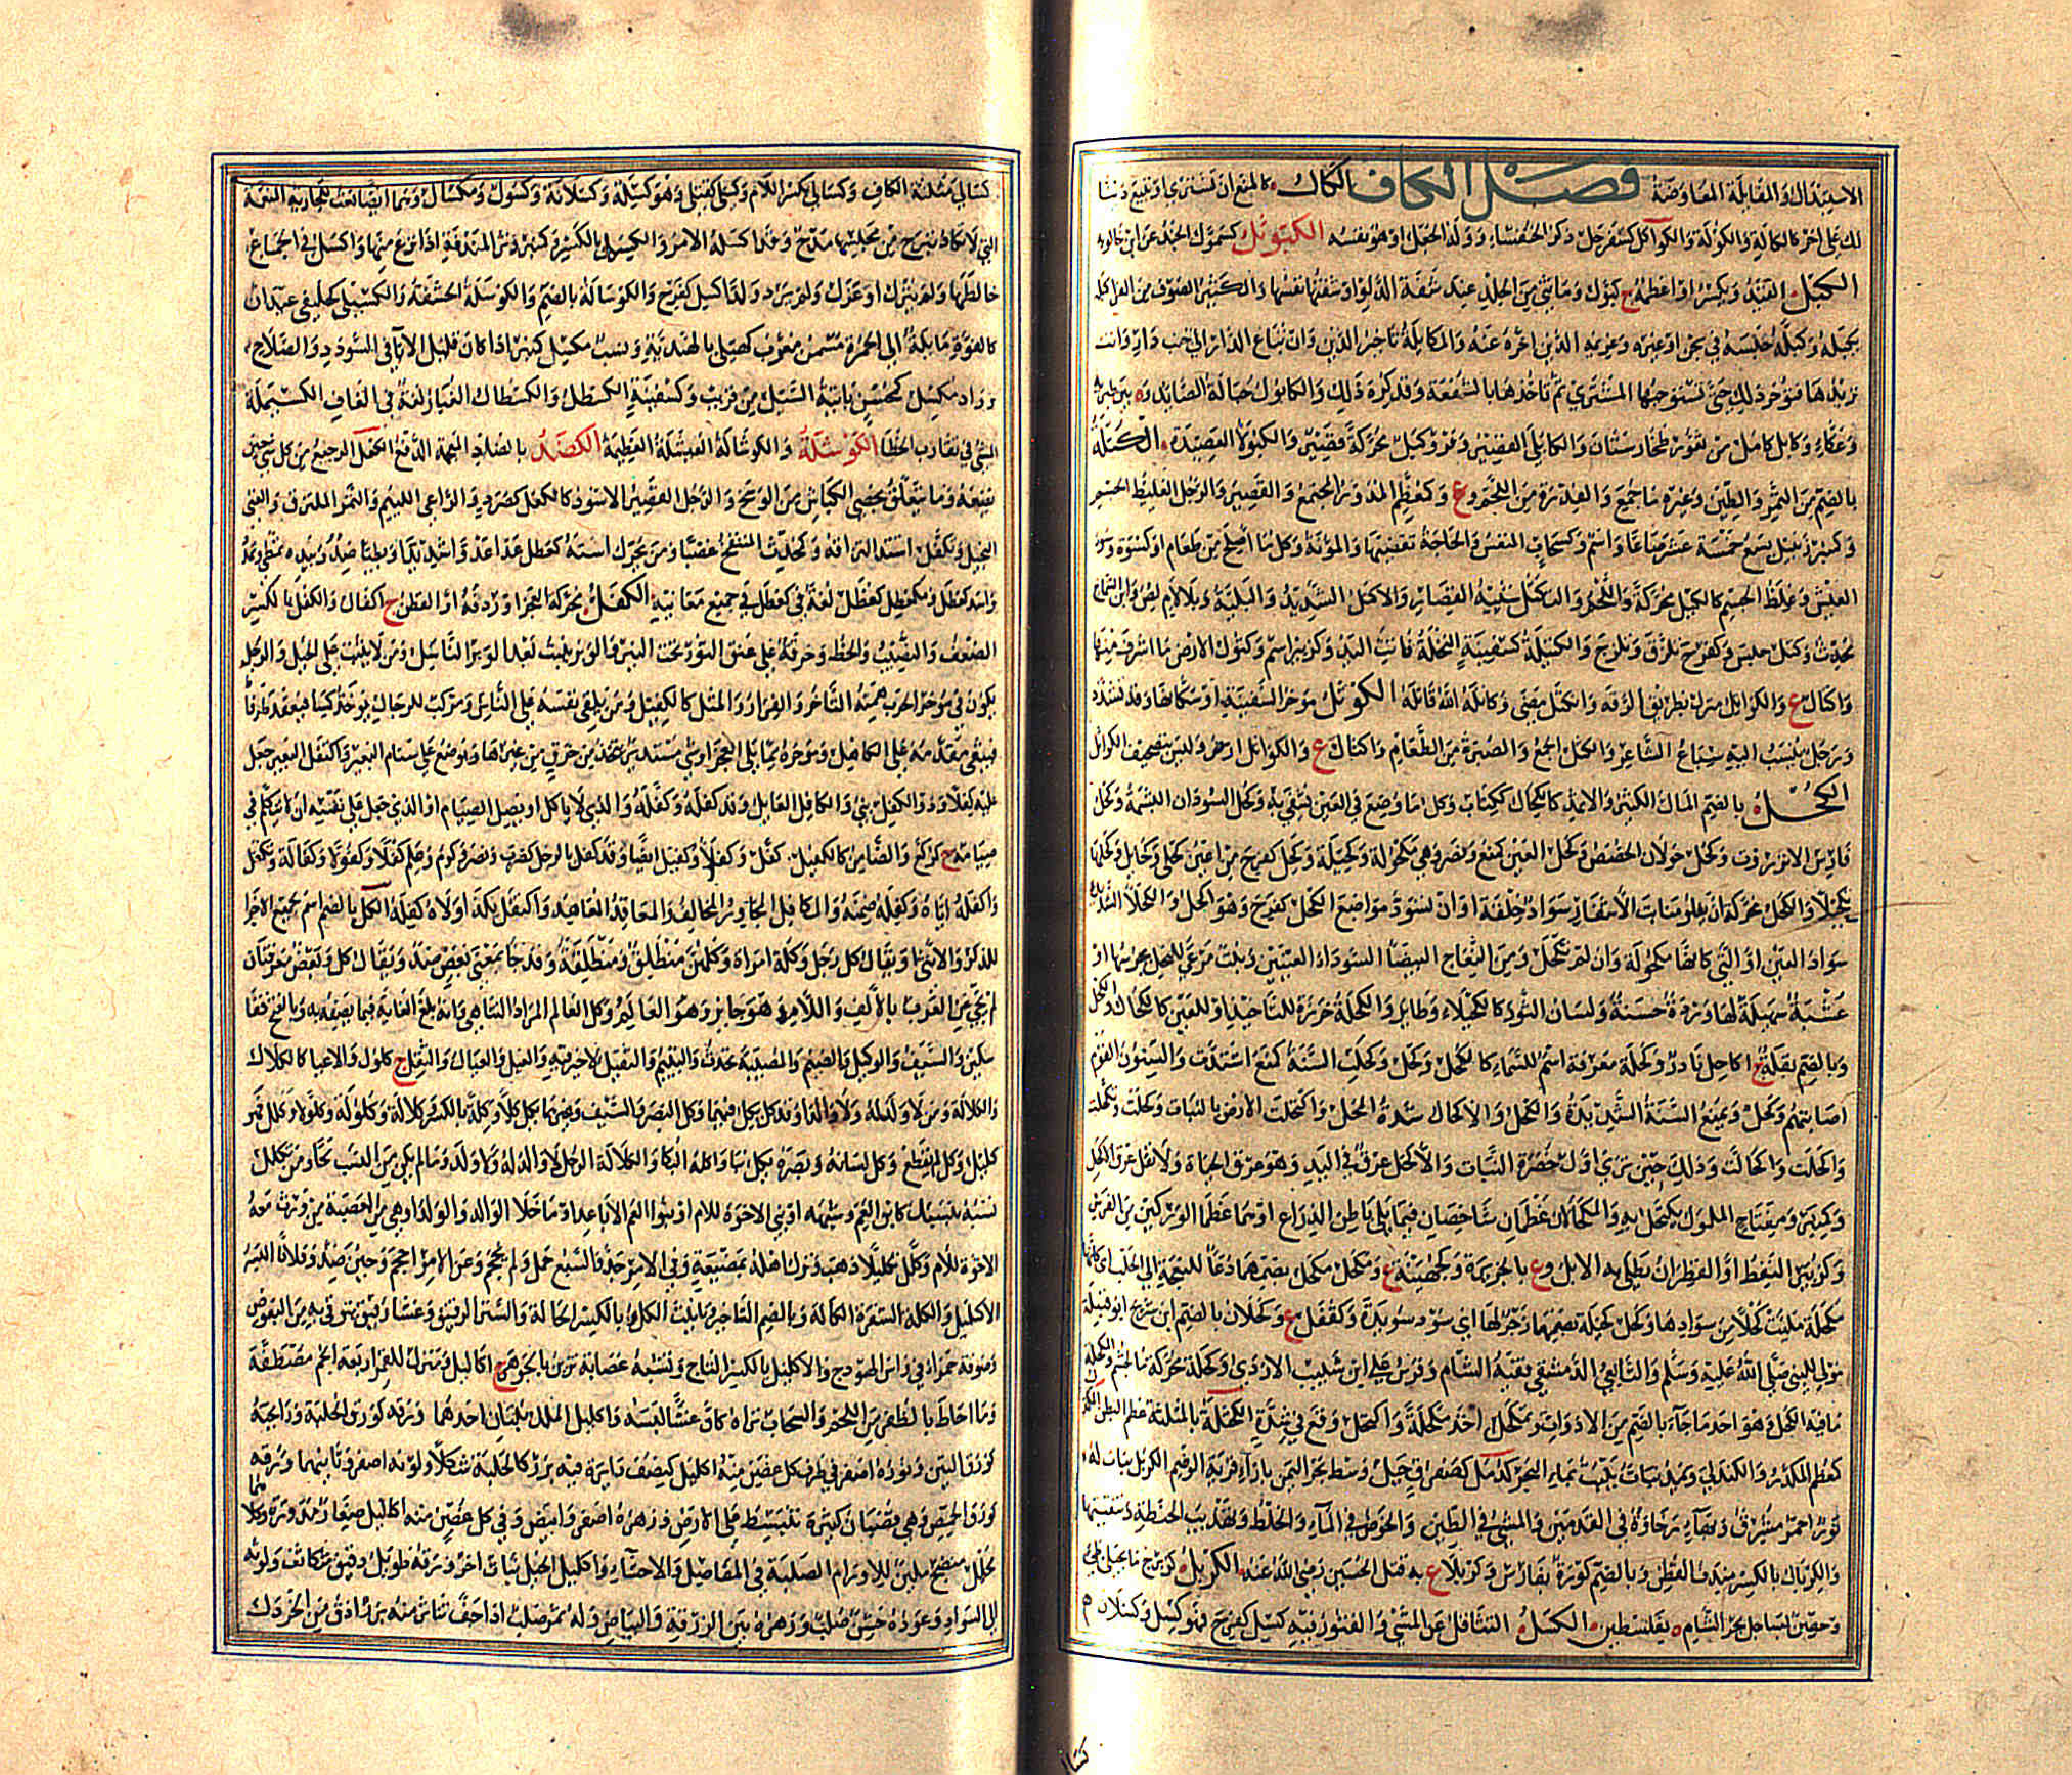 الاستبدال والمقابلة المعاوضة فصل الكاف الكال كالمنع ان تشتري او تبيع دينا
لك على اخر كالكالة والكؤلة والكوألل كسفرجل ذكر الخنفساء وولد الحجل او هو نفسه الكبوثل كسموأل الجندب عن ابن خالويه
الكبل القيد ويكسر او اعظمه ج كبول وما ثني من الجلد عند شفة الدلو او شفتها نفسها والكثير الصوف من الفراء كبله
يكبله وكبله حبسه في سجن او غيره وغريمه الدين اخره عنه والمكابلة تاخير الدين وان تباع الدار الى جنب دار وانت
تريدها فتؤخر ذلك حتى يستوجبها المشتري ثم تاخذها بالشفعة وقد كره ذلك والكابول حبالة الصائد وه بين طبرية
وعكاء وكابل كآمل من ثغور طخارستان والكابلي القصير وفرو كبل محركة قصير والكبولاء العصيدة الكتلة
بالضم من التمر والطين وغيره ما جمع والفدرة من اللحم وع وكمعظم المدور المجتمع والقصير والرجل الغليظ الجسم
وكمنبر زنبيل يسع خمسة عشر صاعا واسم وكسحاب النفس والحاجة تقضيها والمؤنة وكل ما اصلح من طعام او كسوة وسوء
العيش وغلظ الجسم كالكتل محركة واللحم والتكتل مشية القصار والاكتل الشديد والبلية وبلا لام لص وابن الشماخ
محدث وكتل حبس وكفرح تلزق وتلزج والكتيلة كسفينة النخلة فاتت اليد وكزبير اسم وكتول الارض ما اشرف منها
واكتال ع والكواتل منزل بطريق الرقة وانكتل مضى وكاتله الله قاتله الكوثل مؤخر السفينة او سكانها وقد تشدد
ورجل ينسب اليه سباع الشاعر والكثل الجمع والصبرة من الطعام واكثال ع والكواثل ارض وليس تصحيف الكواتل
الكحل بالضم المال الكثير والاثمد كالكحال ككتاب وكل ما وضع في العين يشتفى به وكحل السودان البشمة وكحل
فارس الانزروت وكحل خولان الحضض وكحل العين كمنع ونصر فهي مكحولة وكحيلة وكحل كفرح من اعين كحلى وكحائل وكحلها
تكحيلا والكحل محركة ان يعلو منابت الاشفار سواد خلقة او ان تسود مواضع الكحل كفرح وهو اكحل والكحلاء الشديدة
سواد العين او التي كانها مكحولة وان لم تكحل ومن النعاج البيضاء السوداء العينين ونبت مرعى للنحل يجرسها او
عشبة سهلية لها وردة حسنة ولسان الثور كالكحيلاء وطائر والكحلة خرزة للتاخيذ او للعين كالكحال والكحل
وبالضم بقلة ج اكاحل نادر وكحلة معرفة اسم للسماء كالكحل وكحل وكحلت السنة كمنع اشتدت والسنون القوم
اصابتهم وكحل ويمنع السنة الشديدة والكحل والاكحال شدة المحل واكتحلت الارض بالنبات وكحلت وتكحلت
واكحلت واكحالت وذلك حين ترى اول خضرة النبات والاكحل عرق في اليد وهو عرق الحياة ولا تقل عرق الاكحل
وكمنبر ومفتاح الملمول يكتحل به والمكحالان عظمان شاخصان فيما يلي باطن الذراع او هما عظما الوركين من الفرس
وكزبير النفط او القطران يطلى به الابل وع بالجزيرة وكجهينة ع ومكحل مكحل بضمهما دعاء للنعجة الى الحلب اي كانها
مكحلة ملئت كحلا من سوادها وكحل كحيلة بضمهما زجر لها اي سود سويدة وكقفل ع وكحلان بالضم ابن شريح ابو قبيلة
مولى للنبي صلى الله عليه وسلم والتابعي الدمشقي فقيه الشام وفرس علي ابن شبيب الازدي وكحلة محركة ماء لجشم والمكحلة
ما فيه الكحل وهو احد ما جاء بالضم من الادوات وتمكحل اخذ مكحلة واكتحل وقع في شدة الكحثلة بالمثلثة عظم البطن
كعظم المكدر والكندلى ويمد نبات ينبت بماء البحر كدمل كصنفر في جبل وسط بحر اليمن بازاء قرية الوصم الكربل نبات له
نور احمر مشرق وبهاء رخاوة في القدمين والمشي في الطين والخوض في الماء والخلط وتهذيب الحنطة وتنقيتها
والكربال بالكسر مندف القطن وبالضم كورة بفارس وكربلاء ع به قتل الحسين رضي الله عنه
وحصن بساحل بحر الشام ه بفلسطين الكسل التثاقل عن الشيء والفتور فيه كسل كفرح فهو كسل وكسلان م
كسالى
كسالى مثلثة الكاف وكسالي بكسر اللام وكسلى كقتلى وهي كسلة وكسلانة وكسول ومكسال وهما ايضا نعت للجارية المنعمة
التي لا تكاد تبرح من مجلسها مدح وقد اكسله الامر والكسل بالكسر وكمنبر وتر المندفة اذا نزع منها واكسل في الجماع
خالطها ولم ينزل او عزل ولم يرد ولدا كسل كفرح والكوسالة بالضم والكوسلة الحشفة والكسيلى كخليفى عيدان
كالفوة مائلة الى الحمرة مسمن معرب كهيلى بالهندية ونسب مكسل كمنبر اذا كان قليل الاباء في السؤدد والصلاح
زاد مكسل كمحسن ياتيه السيل من قريب وكسفينة الكسطل والكسطال الغبار لغة في القاف الكسملة
المشي في تقارب الخطا الكوشلة والكوشالة الفيشلة العظيمة بالضاد الدفع الكعل الرجيع من كل شيء حين
يضعه وما يتعلق بخصى الكباش من الوذح والرجل القصير الاسود كالكعل كصرد والراعي اللئيم والتمر الملتزق والغني
البخيل وتكعل اشتد التزاقه وكحديث المنتفخ غضبا ومن يحرك استه كعطل عدا عدوا شديدا وبطيئا ضد ويديه تمطى ومد
واسد كعطل ومكعطل كعظل لغة في كعطل في جميع معانيه الكفل محركة العجز او ردفه او القطن ج اكفال والكفل بالكسر
الضعف والنصيب والحظ وخرقة على عنق الثور تحت النير والوبر ينبت بعد الوبر الناسل ومن لا يثبت على الخيل والرجل
يكون في مؤخر الحرب همته التاخر والفرار والمثل كالكفيل ومن يلقي نفسه على الناس ومركب للرجال يؤخذ كساء فيعقد طرفاه
فيلقى مقدمه على الكاهل ومؤخره مما يلي العجز او شيء مستدير يتخذ من خرق من غيرها ويوضع على سنام البعير واكتفل البعير جعل
عليه كفلا وذو الكفل نبي والكافل العائل وقد كفله وكفله والذي لا ياكل او يصل الصيام او الذي جعل على نفسه ان لا يتكلم في
صيامه ج كركع والضامن كالكفيل ج كفل وكفلاء وكفيل ايضا وقد كفل بالرجل كضرب ونصر وكرم وعلم كفلا وكفولا وكفالة وتكفل
واكفله اياه وكفله ضمنه والمكافل المجاور المحالف والمعاقد المعاهد واكتفل بكذا ولاه كفله الكل بالضم اسم لجميع الاجزاء
للذكر والانثى او يقال كل رجل وكلة امراة وكلهن منطلق ومنطلقة وقد جاء بمعنى بعض ضد ويقال كل وبعض معرفتان
لم يجئ عن العرب بالالف واللام وهو جائز وهو العالم كل العالم المراد التناهي وانه بلغ الغاية فيما يصفه به وبالفتح قفا
سكين والسيف والوكيل والصنم والمصيبة تحدث واليتيم والثقيل لا خير فيه والعيل والعيال والثقل ج كلول والاعياء كالكلال
والكلالة ومن لا ولد له ولا والد وقد كل يكل فيهما وكل البصر والسيف وغيرهما يكل كلا وكلة بالكسر وكلالة وكلولة وكلولا وكلل فهو
كليل وكل لم يقطع وكل لسانه وبصره يكل نبا واكله البكاء والكلالة الرجل لا ولد له ولا والد وما لم يكن من النسب لحا او من تكلل
نسبه بنسبك كابن العم وشبهه او بني الاخوة للام او بنو العم الاباعد او ما خلا الوالد والولد او هي من العصبة من ورث معه
الاخوة للام وكلل تكليلا ذهب وترك اهله بمضيعة وفي الامر جد والسبع حمل ولم يحجم وعن الامر احجم وجبن ضد وفلانا البسه
الاكليل والكلة الشفرة الكالة وبالضم التاخير وتانيث الكل وبالكسر الحالة والستر الرقيق وغشاء رقيق يتوقى به من البعوض
وصوفة حمراء في راس الهودج والاكليل بالكسر التاج وشبه عصابة تزين بالجوهر ج اكاليل ومنزل للقمر اربعة انجم مصطفة
وما احاط بالظفر من اللحم والسحاب تراه كان غشاء البسه واكليل الملك نبتان احدهما ورقه كورق الحلبة ورائحته
كورق التين ونوره اصفر في طرف كل غصن منه اكليل كنصف دائرة فيه بزر كالحلبة شكلا ولونه اصفر وثانيهما ورقه
كورق الحمص وهي قضبان كثيرة تنبسط على الارض وزهره اصفر وابيض وفي كل غصن منه اكاليل صغار مدورة وكلاهما
محلل منضج ملين للاورام الصلبة في المفاصل والاحشاء واكليل الجبل نبات اخر ورقه طويل دقيق متكاثف ولونه
الى السواد وعوده خشن صلب وزهره بين الزرقة والبياض وله ثمر صلب اذا جف تناثر منه بزر ادق من الخردل